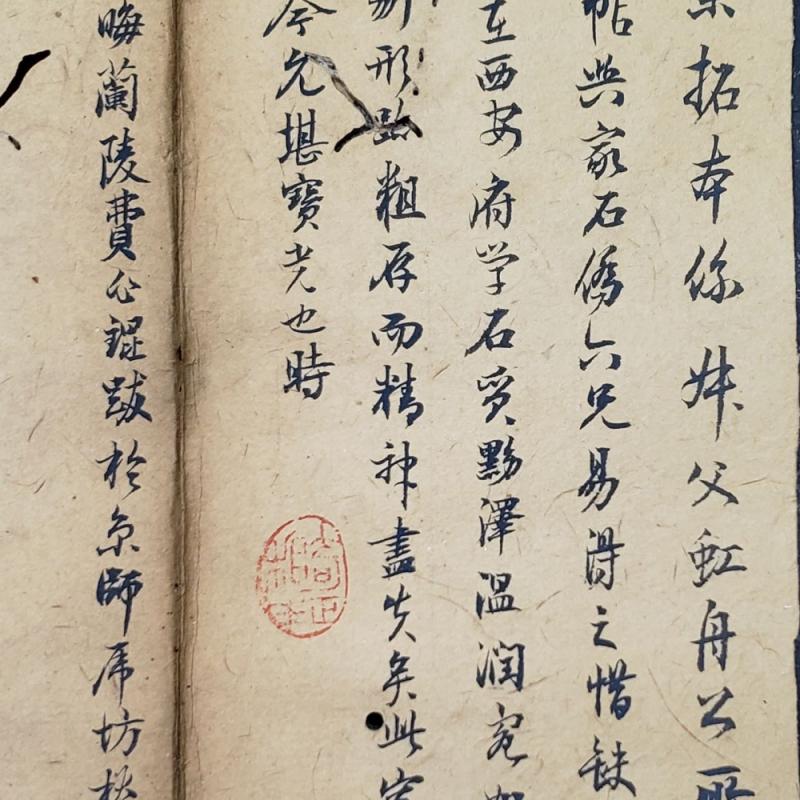 拓本係妷父虹舟公所
帖與家石儕六兄易得之惜缺
在西安府学石質黝澤溫潤宛如
形跡粗存而精神盡失矣此
今允堪寶光也時
晦蘭陵費公錕跋於京師虎坊橋